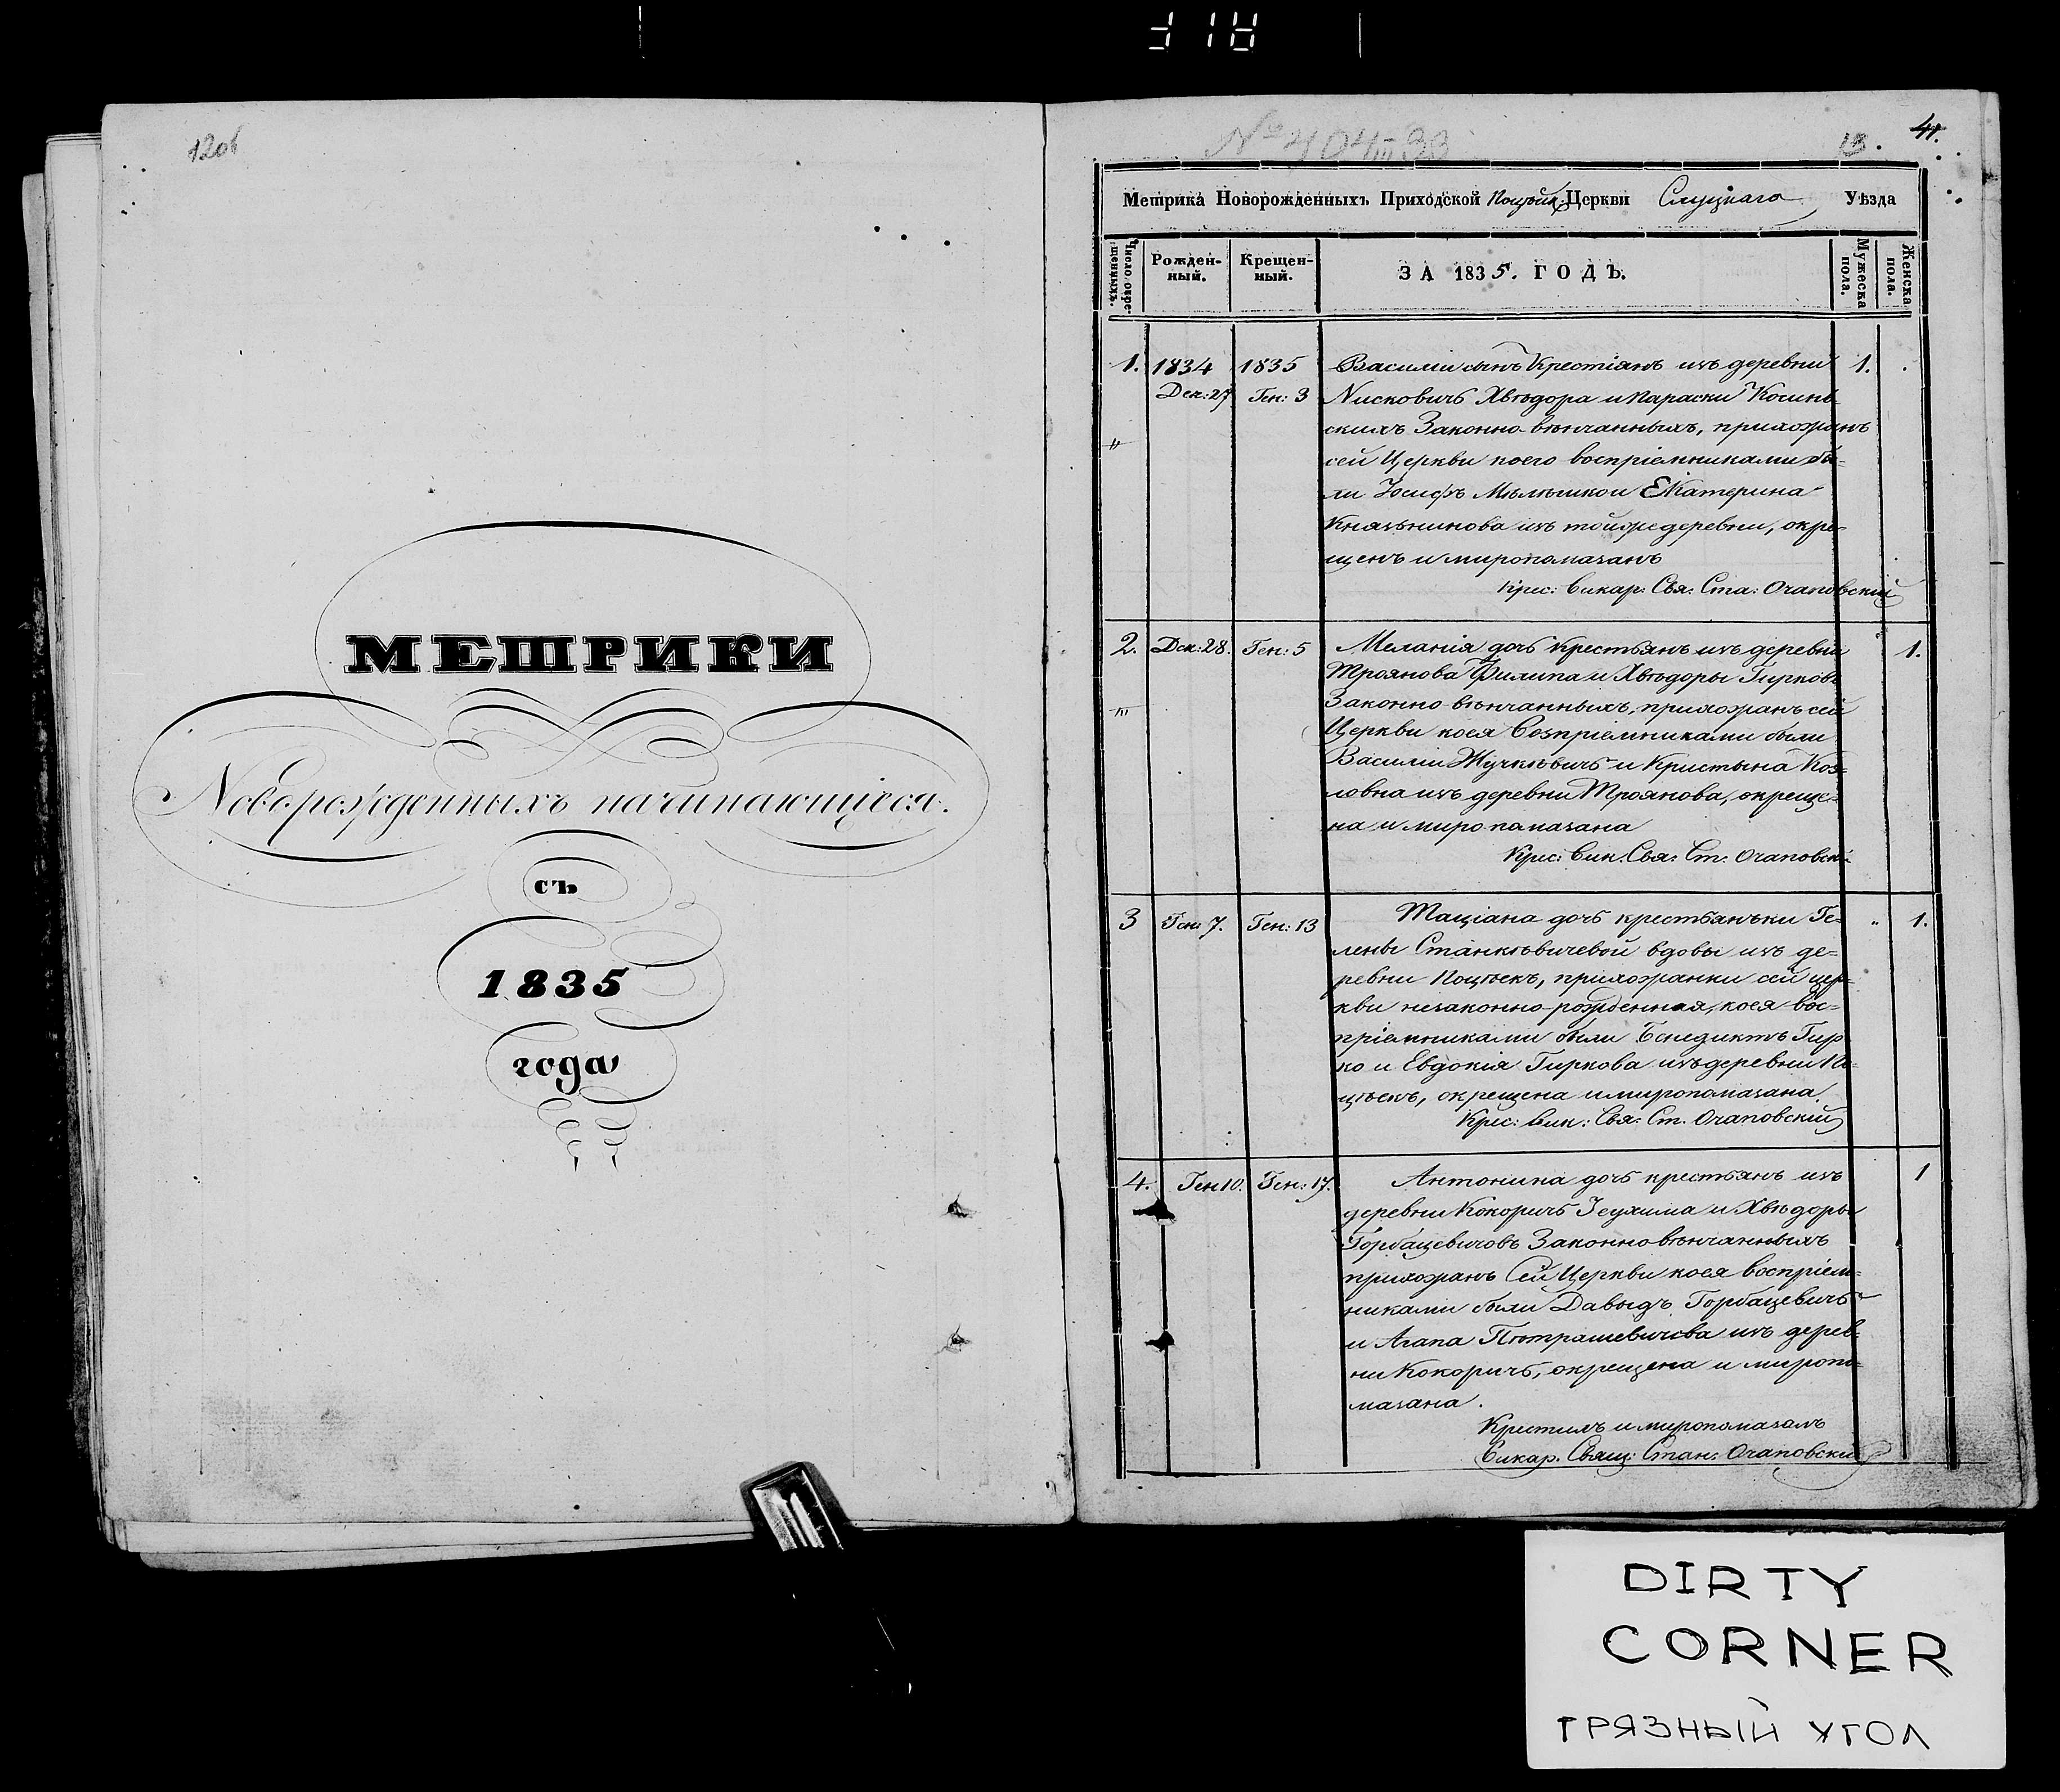 12об
МЕТРИКИ
Новорожденныхъ начинающіеся.
съ
1835
года
№ 404
13. 41.
Метрика Новорожденныхъ Приходской Поцѣйк: Церкви Слуцкаго Уѣзда
Число окрещенныхъ. Рожденный. Крещенный. ЗА 1835. ГОДЪ. Мужеска пола. Женска пола.
1. 1834 1835 Василій сынъ Крестіянъ изъ деревни 1.
Дек: 27 Ген: 3 Нисковичъ Хвѣдора и Параски Косинь-
скихъ Законно-вѣнчанныхъ, прихожанъ
сей Церкви коего воспріемниками бы-
ли Іосифъ Мѣлѣшко и Екатерина
Княжнинова изъ тойже деревни, окре-
щенъ и миропомазанъ
Крес: Викар: Свя: Ста: Очаповскій
2. Дек: 28. Ген: 5 Меланія дочь крестьянъ изъ деревни 1.
Троянова Филипа и Хвѣдоры Гирковъ
Законно-вѣнчанныхъ, прихожанъ сей
Церкви коея Воспріемниками были
Василій Жучкѣвичъ и Кристына Коз-
ловна изъ деревни Троянова, окреще-
на и миропомазана
Крес: Вик: Свя: Ст: Очаповскі
3 Ген: 7. Ген: 13 Таціана дочь крестьянъки Ге- 1.
лены Станкѣвичевой вдовы изъ де=
ревни Поцѣекъ, прихожанки сей цер-
кви незаконно-рожденная, коея вос-
пріемниками были Бенедиктъ Гир
ко и Евдокія Гиркова изъ деревни По-
цѣекъ, окрещена и миропомазана.
Крес: Вик: Свя: Ст. Очаповскій
4. Ген 10. Ген: 17. Антонина дочь крестьянъ изъ 1
деревни Кокоричъ Іеухима и Хвѣдоры
Горбацевичовъ Законновѣнчанныхъ
прихожанъ Сей Церкви коея воспріем-
никами были Давыдъ Горбацевичъ
и Агапа Пѣтрашевичова изъ дерев-
ни Кокоричъ, окрещена и миропо-
мазана.
Крестилъ и миропомазалъ
Викар. Свящ: Стан: Очаповскій
DIRTY
CORNER
ГРЯЗНЫЙ УГОЛ